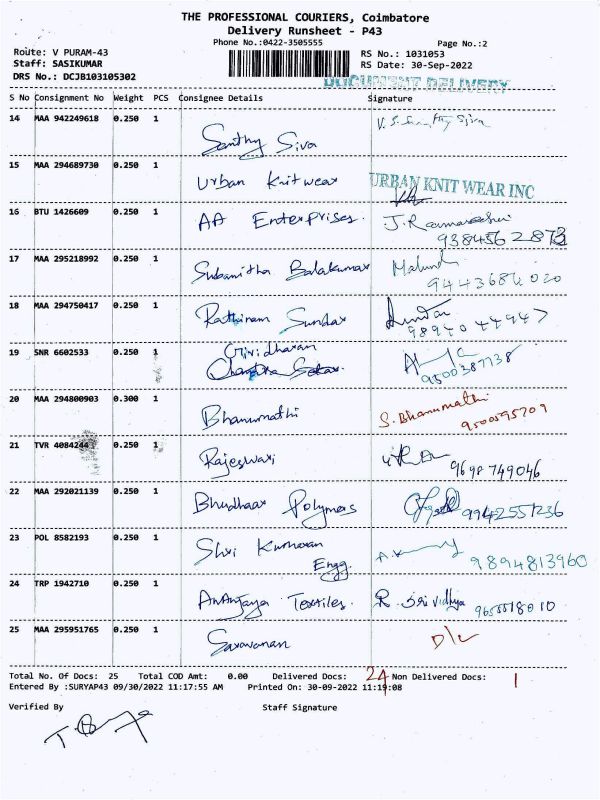 THE PROFESSIONAL COURIERS, Coimbatore
Delivery Runsheet - P43
Phone No.:0422-3505555
Page No.:2
Route: V PURAM-43
RS No.: 1031053
Staff: SASIKUMAR
RS Date: 30-Sep-2022
DRS No.: DCJB103105302
DOCUMENT DELIVERY
S No Consignment No Weight PCS Consignee Details Signature
14 MAA 942249618 0.250 1 Santhy Siva
15 MAA 294689730 0.250 1 Urban Knitwear URBAN KNIT WEAR INC
16 BTU 1426609 0.250 1 AA Enterprises.
17 MAA 295218992 0.250 1 Subanitha Balakumar
18 MAA 294750417 0.250 1 Rathinam Sundar
9894044947
19 SNR 6602533 0.250 1 Giridharan
9500387138
20 MAA 294800903 0.300 1 Bhanumathi S. Bhanumathi
9500595709
21 TVR 4084244 0.250 1 Rajeswari 9698749046
22 MAA 292021139 0.250 1 Bhudhaar Polymers 9942551236
23 POL 8582193 0.250 1 Shri Kumaran
Engg. 9894813960
24 TRP 1942710 0.250 1 Ananjaya Textiles. R. Sri Vidhya
25 MAA 295951765 0.250 1 Saravanan D/L
Total No. Of Docs: 25 Total COD Amt: 0.00 Delivered Docs: 24 Non Delivered Docs: 1
Entered By :SURYAP43 09/30/2022 11:17:55 AM Printed On: 30-09-2022 11:19:08
Verified By Staff Signature